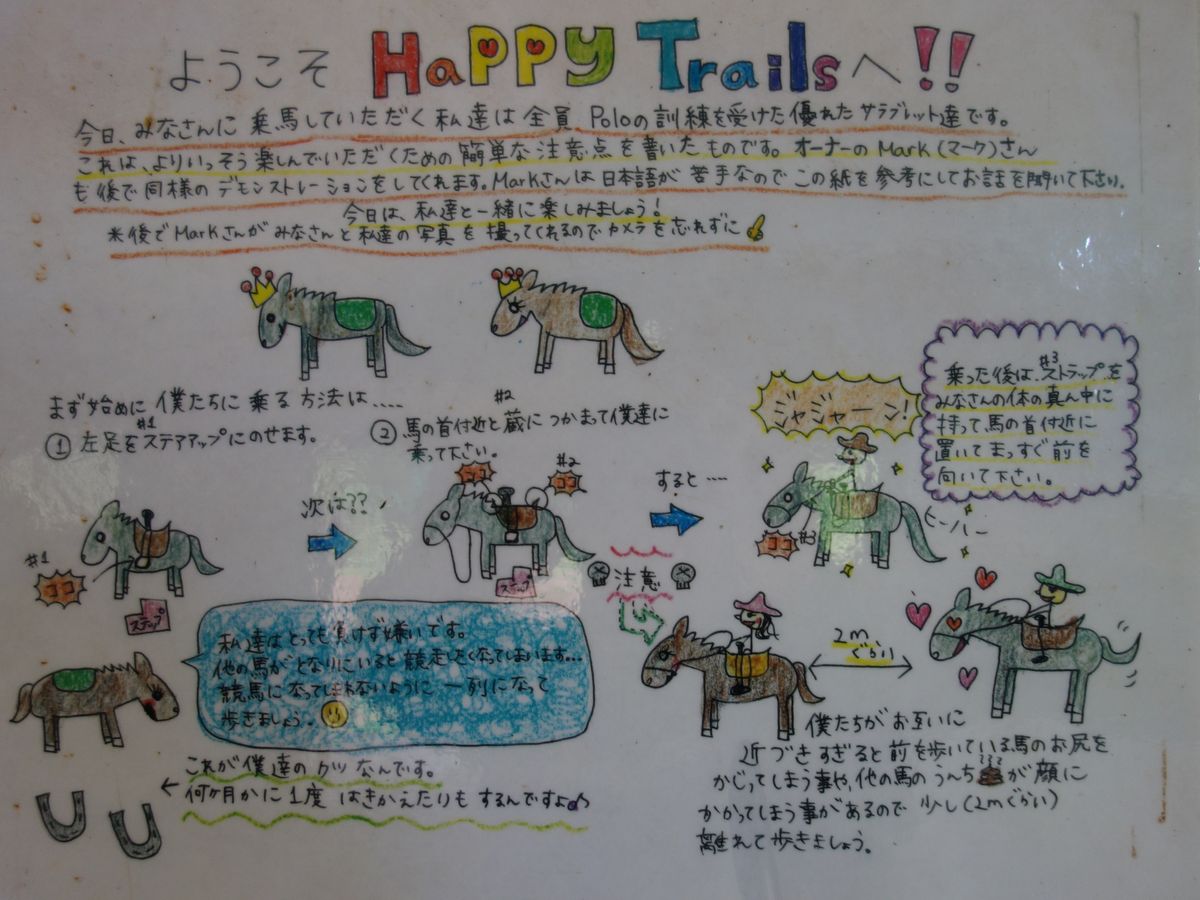 ようこそ HaPPY Trailsへ!!
今日、みなさんに 乗馬していただく 私達は 全員 Poloの訓練を受けた 優れた サラブレット達です。
これは、よりいっそう 楽しんでいただくための 簡単な 注意点を 書いた ものです。オーナーの Mark (マーク)さん
も 後で 同様の デモンストレーションを してくれます。Markさんは 日本語が 苦手なので この紙を 参考にして お話を 聞いて 下さい。
今日は、私達と一緒に 楽しみましょう!
※後で Markさんが みなさんと 私達の 写真を 撮ってくれるので カメラを 忘れずに
まず始めに 僕たちに 乗る 方法は....
① 左足を ステアアップにのせます。
#1
#2
② 馬の首付近と 蔵に つかまって 僕達に
乗って下さい。
次は??
すると....
ジャジャーン!
#3
乗った後は、ストラップを
みなさんの体の真ん中に
持って、馬の首付近に
置いて まっすぐ 前を
向いて 下さい。
#1
ココ
ステップ
ココ
#2
ココ
ステップ
ココ
#3
ヒーハー
注意
私達は とっても 負けず嫌いです。
他の馬が となりにいると 競走したくなってしまいます...
競馬に なってしまわないように 一列になって
歩きましょう。
2m
ぐらい
これが 僕達の クツ なんです。
← 何ヶ月かに 1度 はきかえたりも するんですよ♪
僕たちが お互いに
近づきすぎると 前を 歩いている 馬の お尻を
かじってしまう 事や、他の馬の うんち が 顔に
かかってしまう 事があるので 少し (2mぐらい)
離れて 歩きましょう。